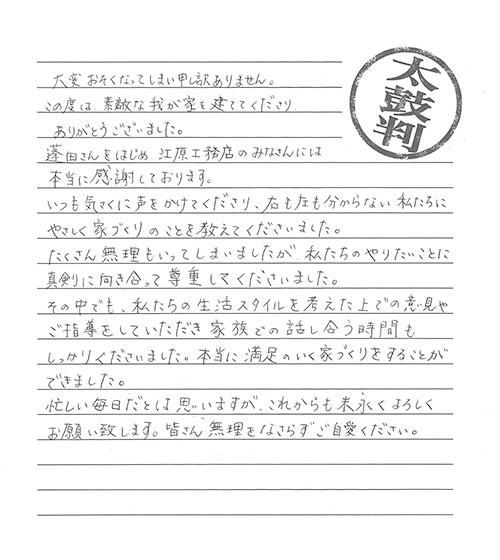 大変おそくなってしまい申し訳ありません。
この度は、素敵な我が家を建ててくださり、
ありがとうございました。
蓬田さんをはじめ、江原工務店のみなさんには
本当に感謝しております。
いつも気さくに声をかけてくださり、右も左も分からない私たちに
やさしく家づくりのことを教えてくださいました。
たくさん無理もいってしまいましたが、私たちのやりたいことに
真剣に向き合って尊重してくださいました。
その中でも、私たちの生活スタイルを考えた上での意見や
ご指導をしていただき家族での話し合う時間も
しっかりくださいました。本当に満足のいく家づくりをすることが
できました。
忙しい毎日だとは思いますが、これからも末永くよろしく
お願い致します。皆さん無理をなさらずご自愛ください。
太鼓判